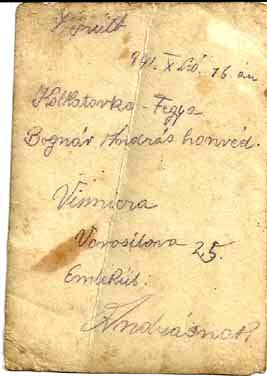 Készült
941. X. hó. 16. án
Kolkatovka - Fegya
Bognár András honvéd.
Vinnicra
Vorosilova 25.
Emlékül.
Andrásnak